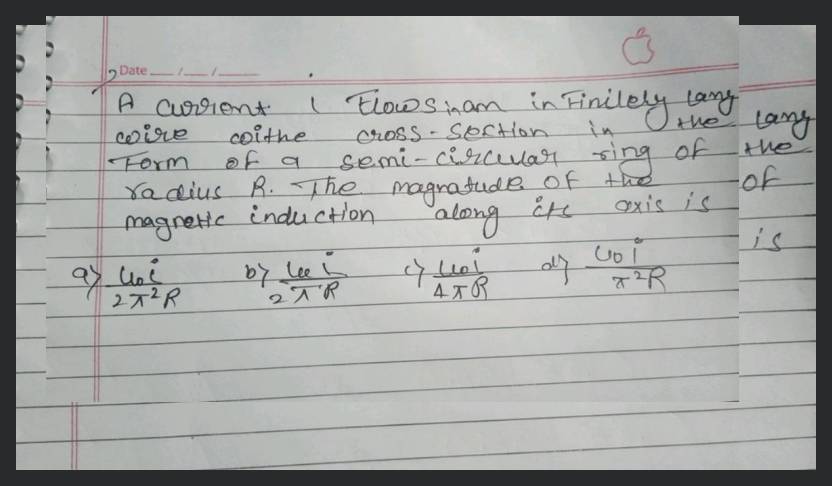 Date __/__/____
A current i Flows in an in Finitely lang
wire withe cross-section in the lang
Form of a semi-circular ring of the
radius R. The magnatude of the of
magnetic induction along its axis is
is
a) μ₀i / 2π²R b) μ₀i / 2πR c) μ₀i / 4πR d) μ₀i / π²R